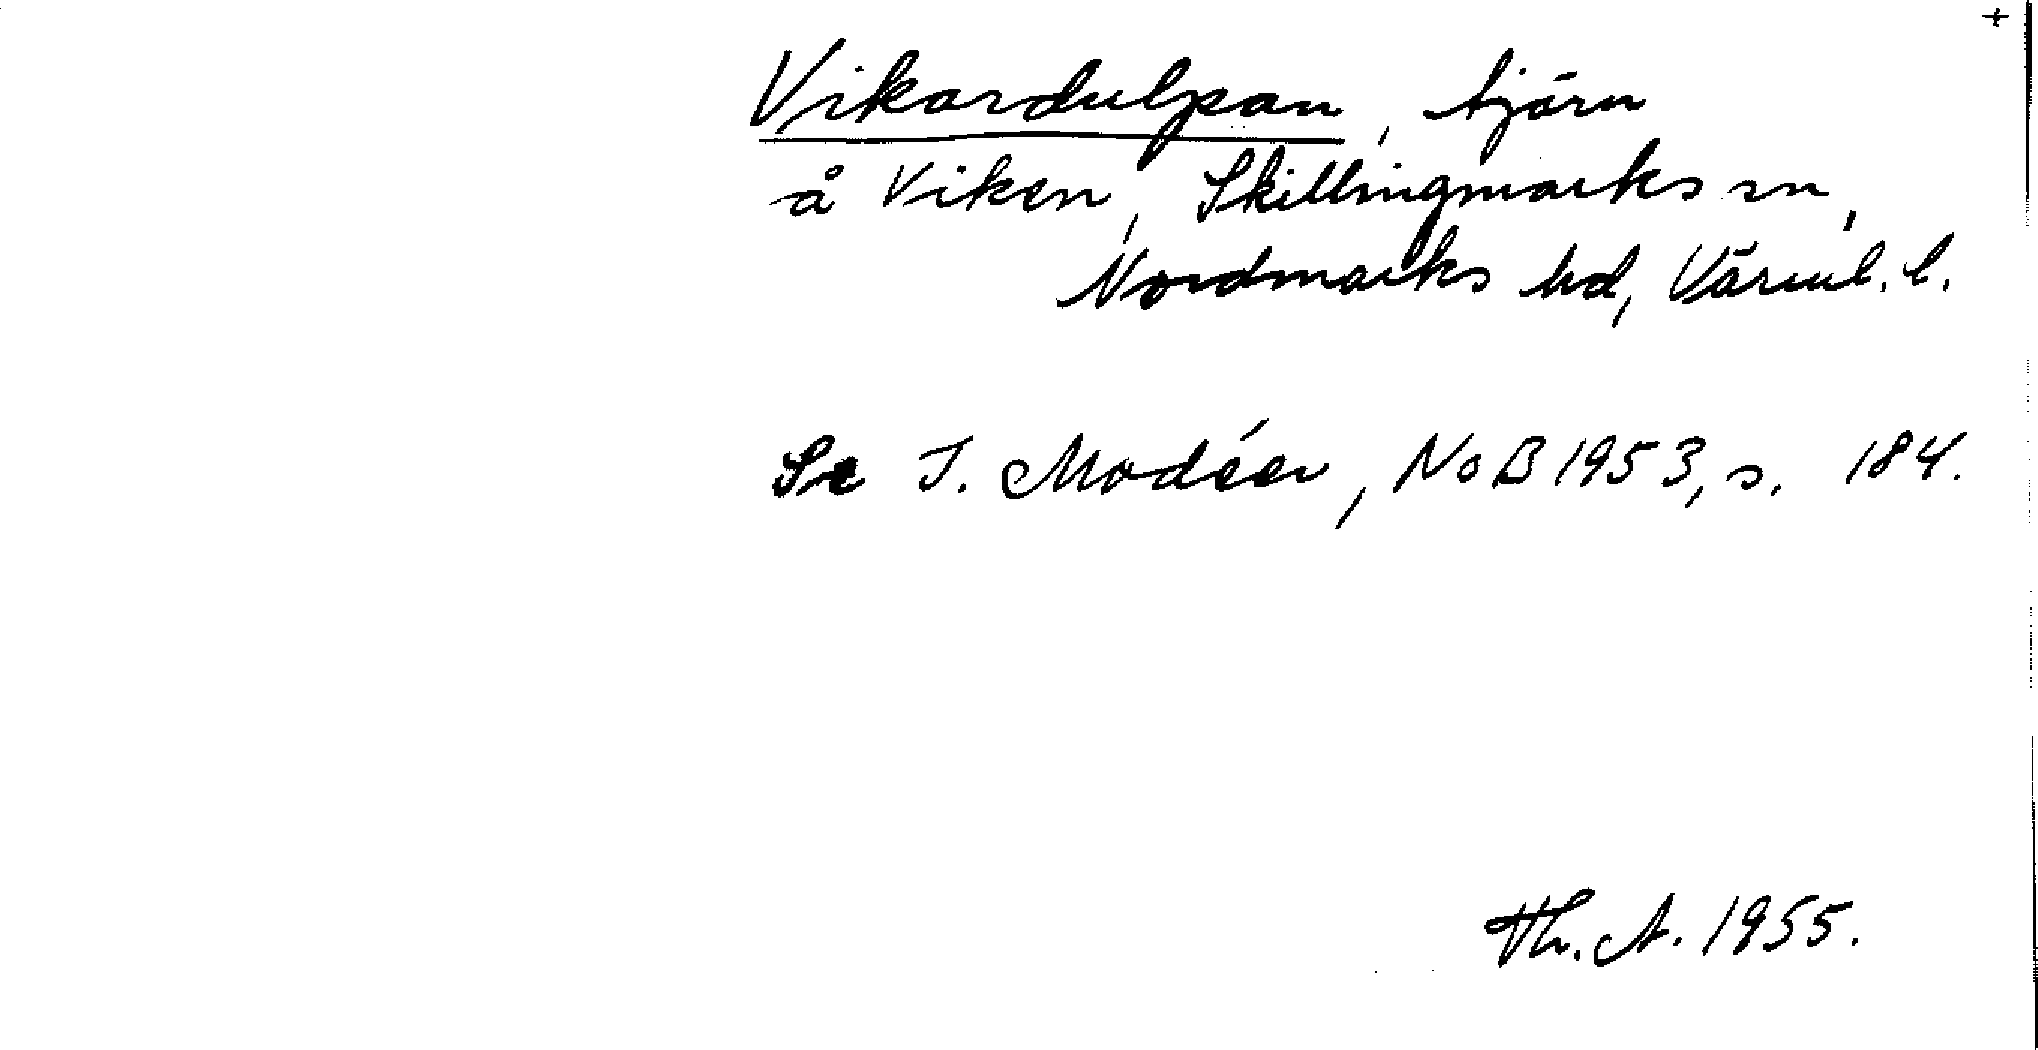 +
Vikardulpan, tjärn
å Viken, Skillingmarks sn,
Nordmarks hd, Värml. l.
Se I. Modéer, NoB 1953, s. 184.
Th. A. 1955.